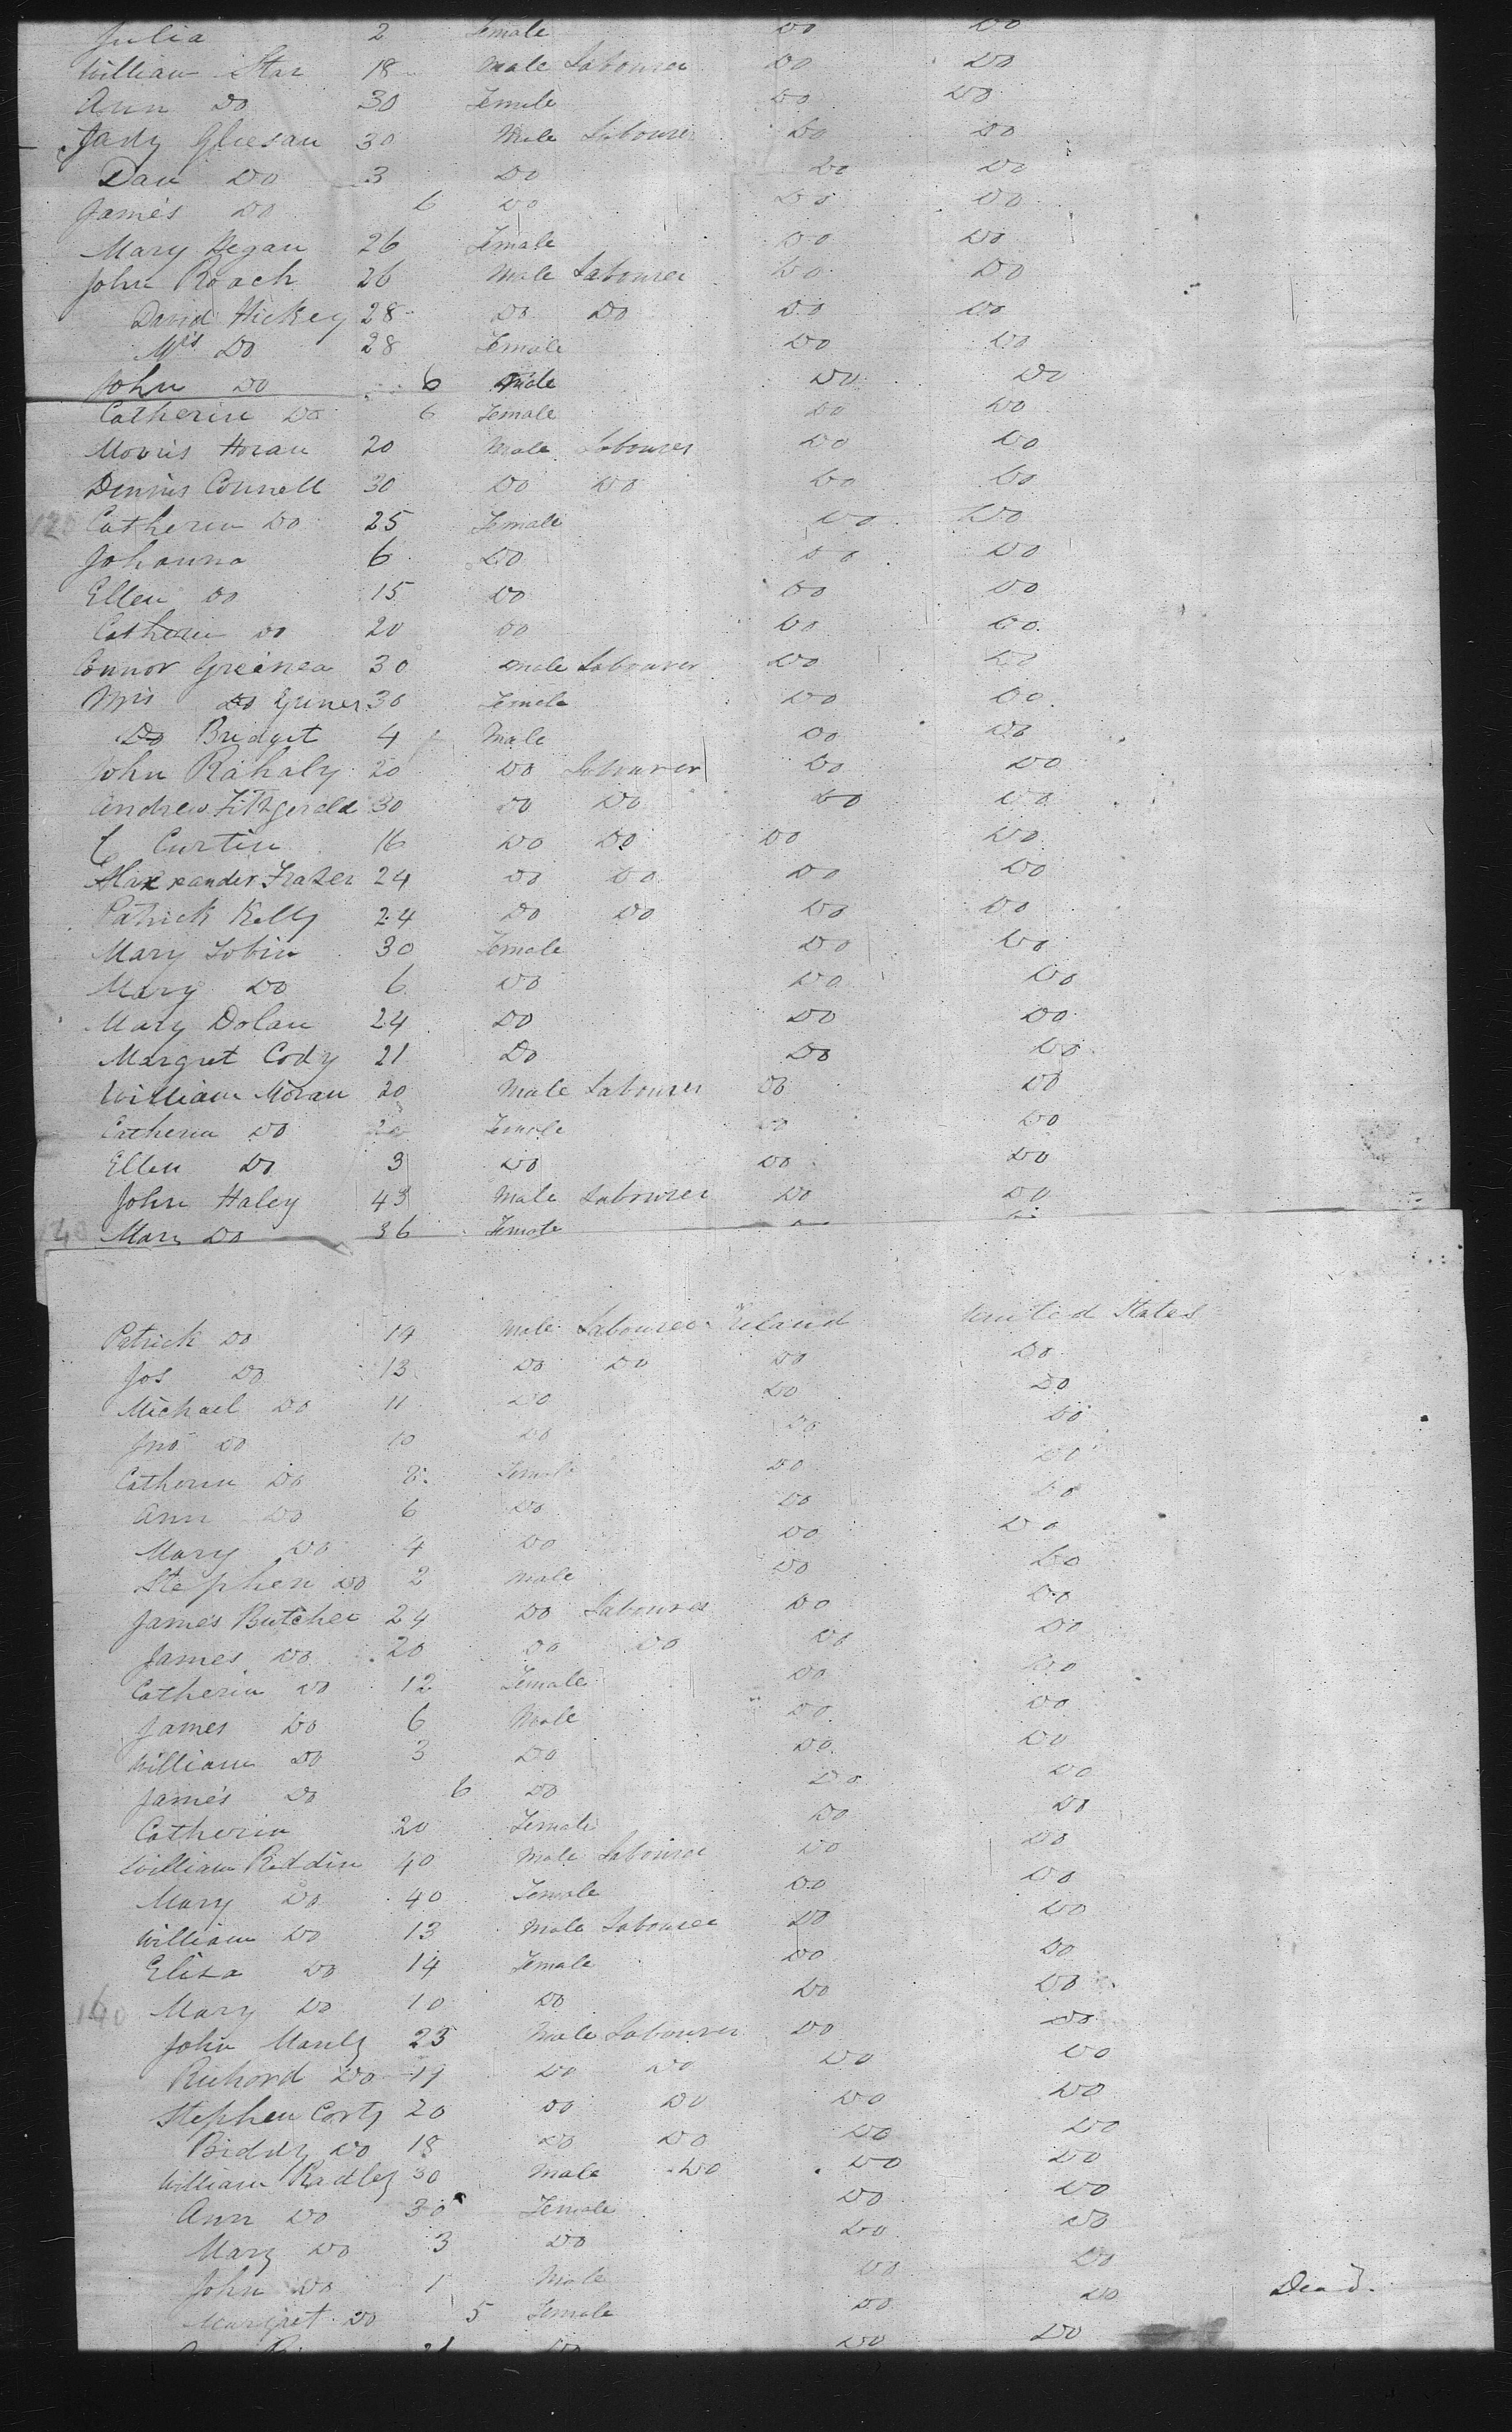 Julia 2 Female Do Do
William Star 18 Male Labourer Do Do
Ann Do 30 Female Do Do
Jady Gleesan 30 Male Labourer Do Do
Dan Do 3 Do Do Do
James Do 6 Do Do Do
Mary Regan 26 Female Do Do
John Roach 26 Male Labourer Do Do
David Hickey 28 Do Do Do Do
Mrs Do 28 Female Do Do
John Do 6 Male Do Do
Catherin Do 6 Female Do Do
Morris Horan 20 Male Labourer Do Do
Dennis Connell 30 Do Do Do Do
120 Catherin Do 25 Female Do Do
Johanna 6 Do Do Do
Ellen Do 15 Do Do Do
Catherin Do 20 Do Do Do
Connor Greenea 30 Male Labourer Do Do
Mrs Do Griner 30 Female Do Do
Do Bridget 4 Male Do Do
John Rahaly 20 Do Labourer Do Do
Andrew Fitzgerald 30 Do Do Do Do
C Curtin 16 Do Do Do Do
Alaxxander Frazer 24 Do Do Do Do
Patrick Kelly 24 Do Do Do Do
Mary Tobin 30 Female Do Do
Mary Do 6 Do Do Do
Mary Dolan 24 Do Do Do
Margret Cody 21 Do Do Do
William Moran 20 Male Labourer Do Do
Catherin Do Female Do Do
Ellen Do 3 Do Do Do
John Haley 43 Male Labourer Do Do
140 Mary Do 36 Female
Patrick Do 14 Male Labourer Ireland United States
Jos Do 13 Do Do Do Do
Michael Do 11 Do Do Do
Jno Do 10 Do Do Do
Catherin Do 8 Female Do Do
Ann Do 6 Do Do Do
Mary Do 4 Do Do Do
Stephen Do 2 Male Do Do
James Butcher 24 Do Labourer Do Do
James Do 20 Do Do Do Do
Catherin Do 12 Female Do Do
James Do 6 Male Do Do
William Do 3 Do Do Do
James Do 6 Do Do Do
Catherin 20 Female Do Do
William Reddin 40 Male Labourer Do Do
Mary Do 40 Female Do Do
William Do 13 Male Labourer Do Do
Eliza Do 14 Female Do Do
160 Mary Do 10 Do Do Do
John Manly 23 Male Labourer Do Do
Richard Do 19 Do Do Do Do
Stephen Corty 20 Do Do Do Do
Biddy Do 18 Do Do Do Do
William Radley 30 Male Do Do Do
Ann Do 30 Female Do Do
Mary Do 3 Do Do Do
John Do 1 Male Do Do
Margret Do 5 Female Do Do Dead.
21 Do Do Do